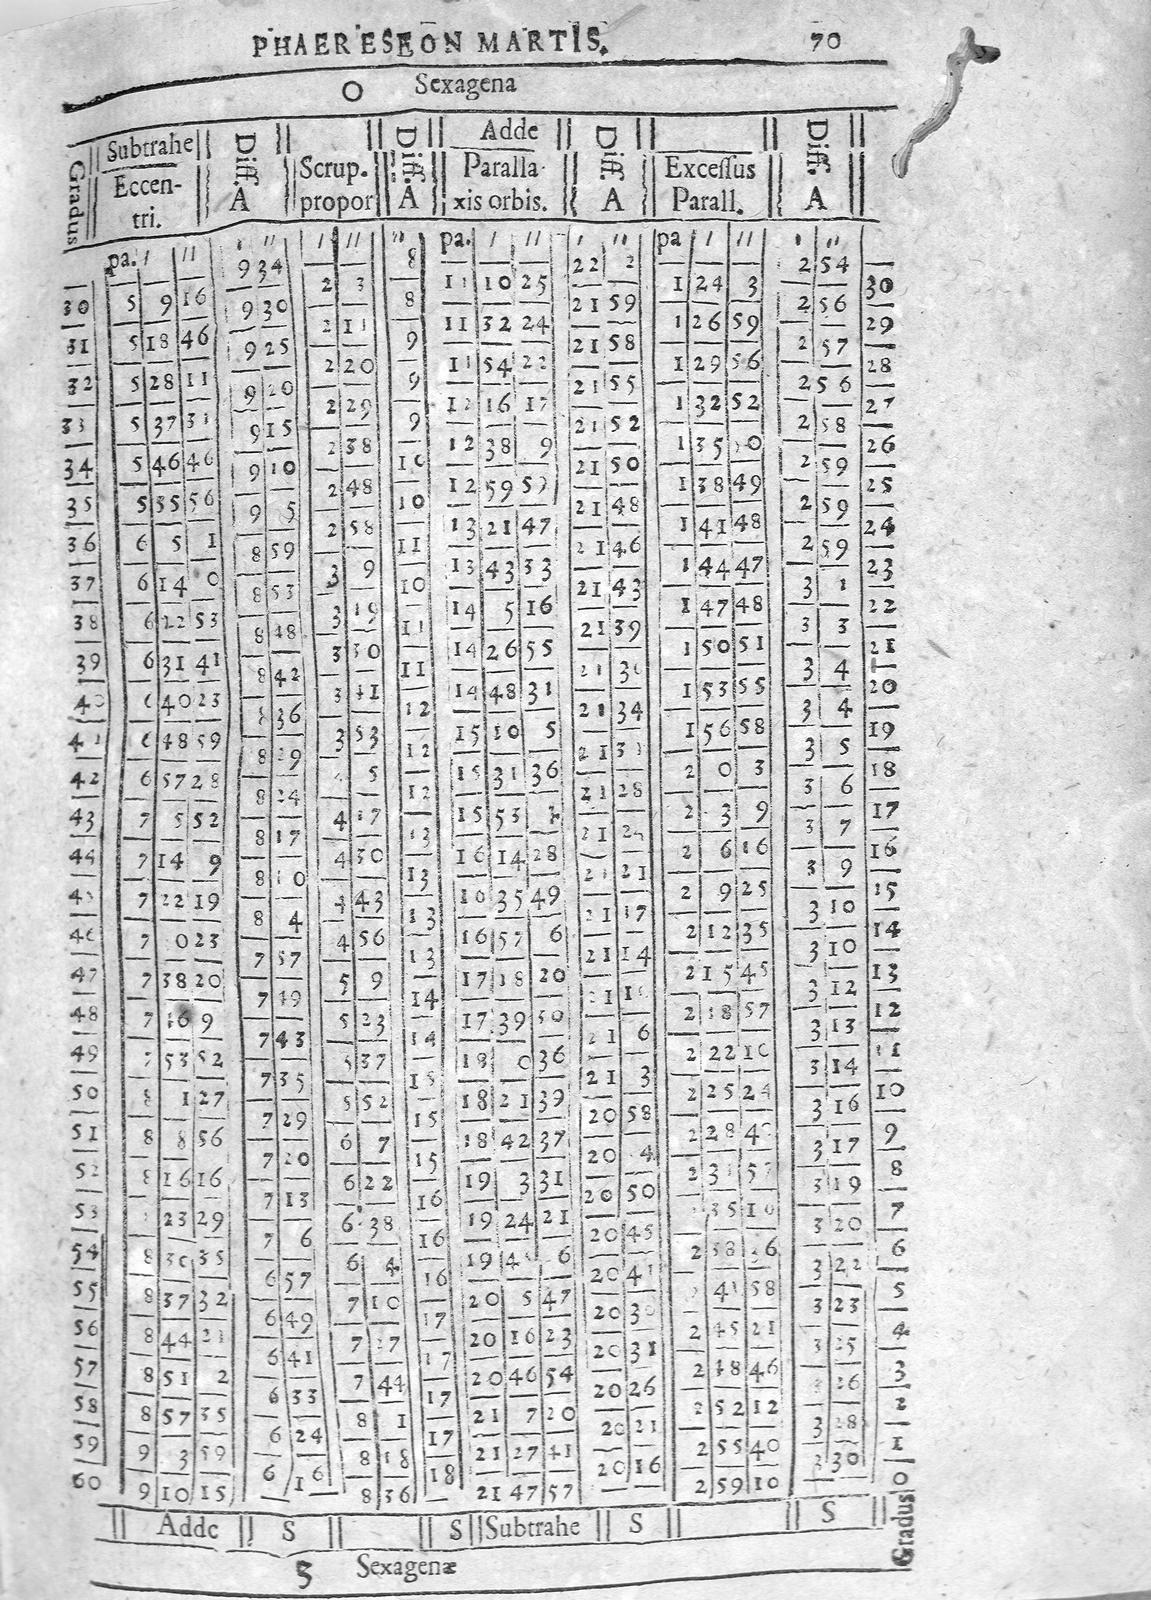 PHAERESEON MARTIS. 70
0 Sexagena
Gradus Subtrahe Eccen-tri. Diff. A Scrup. propor Diff. A Adde Paralla-xis orbis. Diff. A Excessus Parall. Diff. A
pa. ' '' ' '' ' '' '' pa. ' '' ' '' pa ' '' ' ''
30 5 9 16 9 34 2 3 8 11 10 25 22 2 1 24 3 2 54 30
31 5 18 46 9 30 2 11 8 11 32 24 21 59 1 26 59 2 56 29
32 5 28 11 9 25 2 20 9 11 54 22 21 58 1 29 56 2 57 28
33 5 37 31 9 20 2 29 9 12 16 17 21 55 1 32 52 2 56 27
34 5 46 46 9 15 2 38 9 12 38 9 21 52 1 35 0 2 58 26
35 5 55 56 9 10 2 48 10 12 59 59 21 50 1 38 49 2 59 25
36 6 5 1 9 5 2 58 10 13 21 47 21 48 1 41 48 2 59 24
37 6 14 0 8 59 3 9 11 13 43 33 21 46 1 44 47 2 59 23
38 6 22 53 8 53 3 19 10 14 5 16 21 43 1 47 48 3 1 22
39 6 31 41 8 48 3 30 11 14 26 55 21 39 1 50 51 3 3 21
40 6 40 23 8 42 3 41 11 14 48 31 21 36 1 53 55 3 4 20
41 6 48 59 8 36 3 53 12 15 10 5 21 34 1 56 58 3 4 19
42 6 57 28 8 29 4 5 12 15 31 36 21 31 2 0 3 3 5 18
43 7 5 52 8 24 4 17 12 15 53 21 28 2 3 9 3 6 17
44 7 14 9 8 17 4 30 13 16 14 28 21 2 6 16 3 7 16
45 7 22 19 8 10 4 43 13 16 35 49 21 21 2 9 25 3 9 15
46 7 0 23 8 4 4 56 13 16 57 6 21 17 2 12 35 3 10 14
47 7 38 20 7 57 5 9 13 17 18 20 21 14 2 15 45 3 10 13
48 7 16 9 7 49 5 23 14 17 39 50 21 2 18 57 3 12 12
49 7 53 52 7 43 5 37 14 18 0 36 21 6 2 22 10 3 13 11
50 8 1 27 7 35 5 52 15 18 21 39 21 3 2 25 24 3 14 10
51 8 8 56 7 29 6 7 15 18 42 37 20 58 2 28 3 16 9
52 8 16 16 7 20 6 22 15 19 3 31 20 4 2 3 17 8
53 23 29 7 13 6 38 16 19 24 21 20 50 35 10 3 19 7
54 8 30 35 7 6 6 4 16 19 6 20 45 2 38 26 3 20 6
55 8 37 32 6 57 7 10 16 20 5 47 20 41 41 58 3 22 5
56 8 44 21 6 49 7 27 17 20 16 23 20 2 45 21 3 23 4
57 8 51 2 6 41 7 44 17 20 46 54 20 31 2 48 46 3 25 3
58 8 57 35 6 33 8 1 17 21 7 20 20 26 2 52 12 26 2
59 9 3 59 6 24 8 18 17 21 27 41 20 21 2 55 40 3 28 1
60 9 10 15 6 16 8 36 18 21 47 57 20 16 2 59 10 3 30 0
Adde S S Subtrahe S S Gradus
5 Sexagenæ